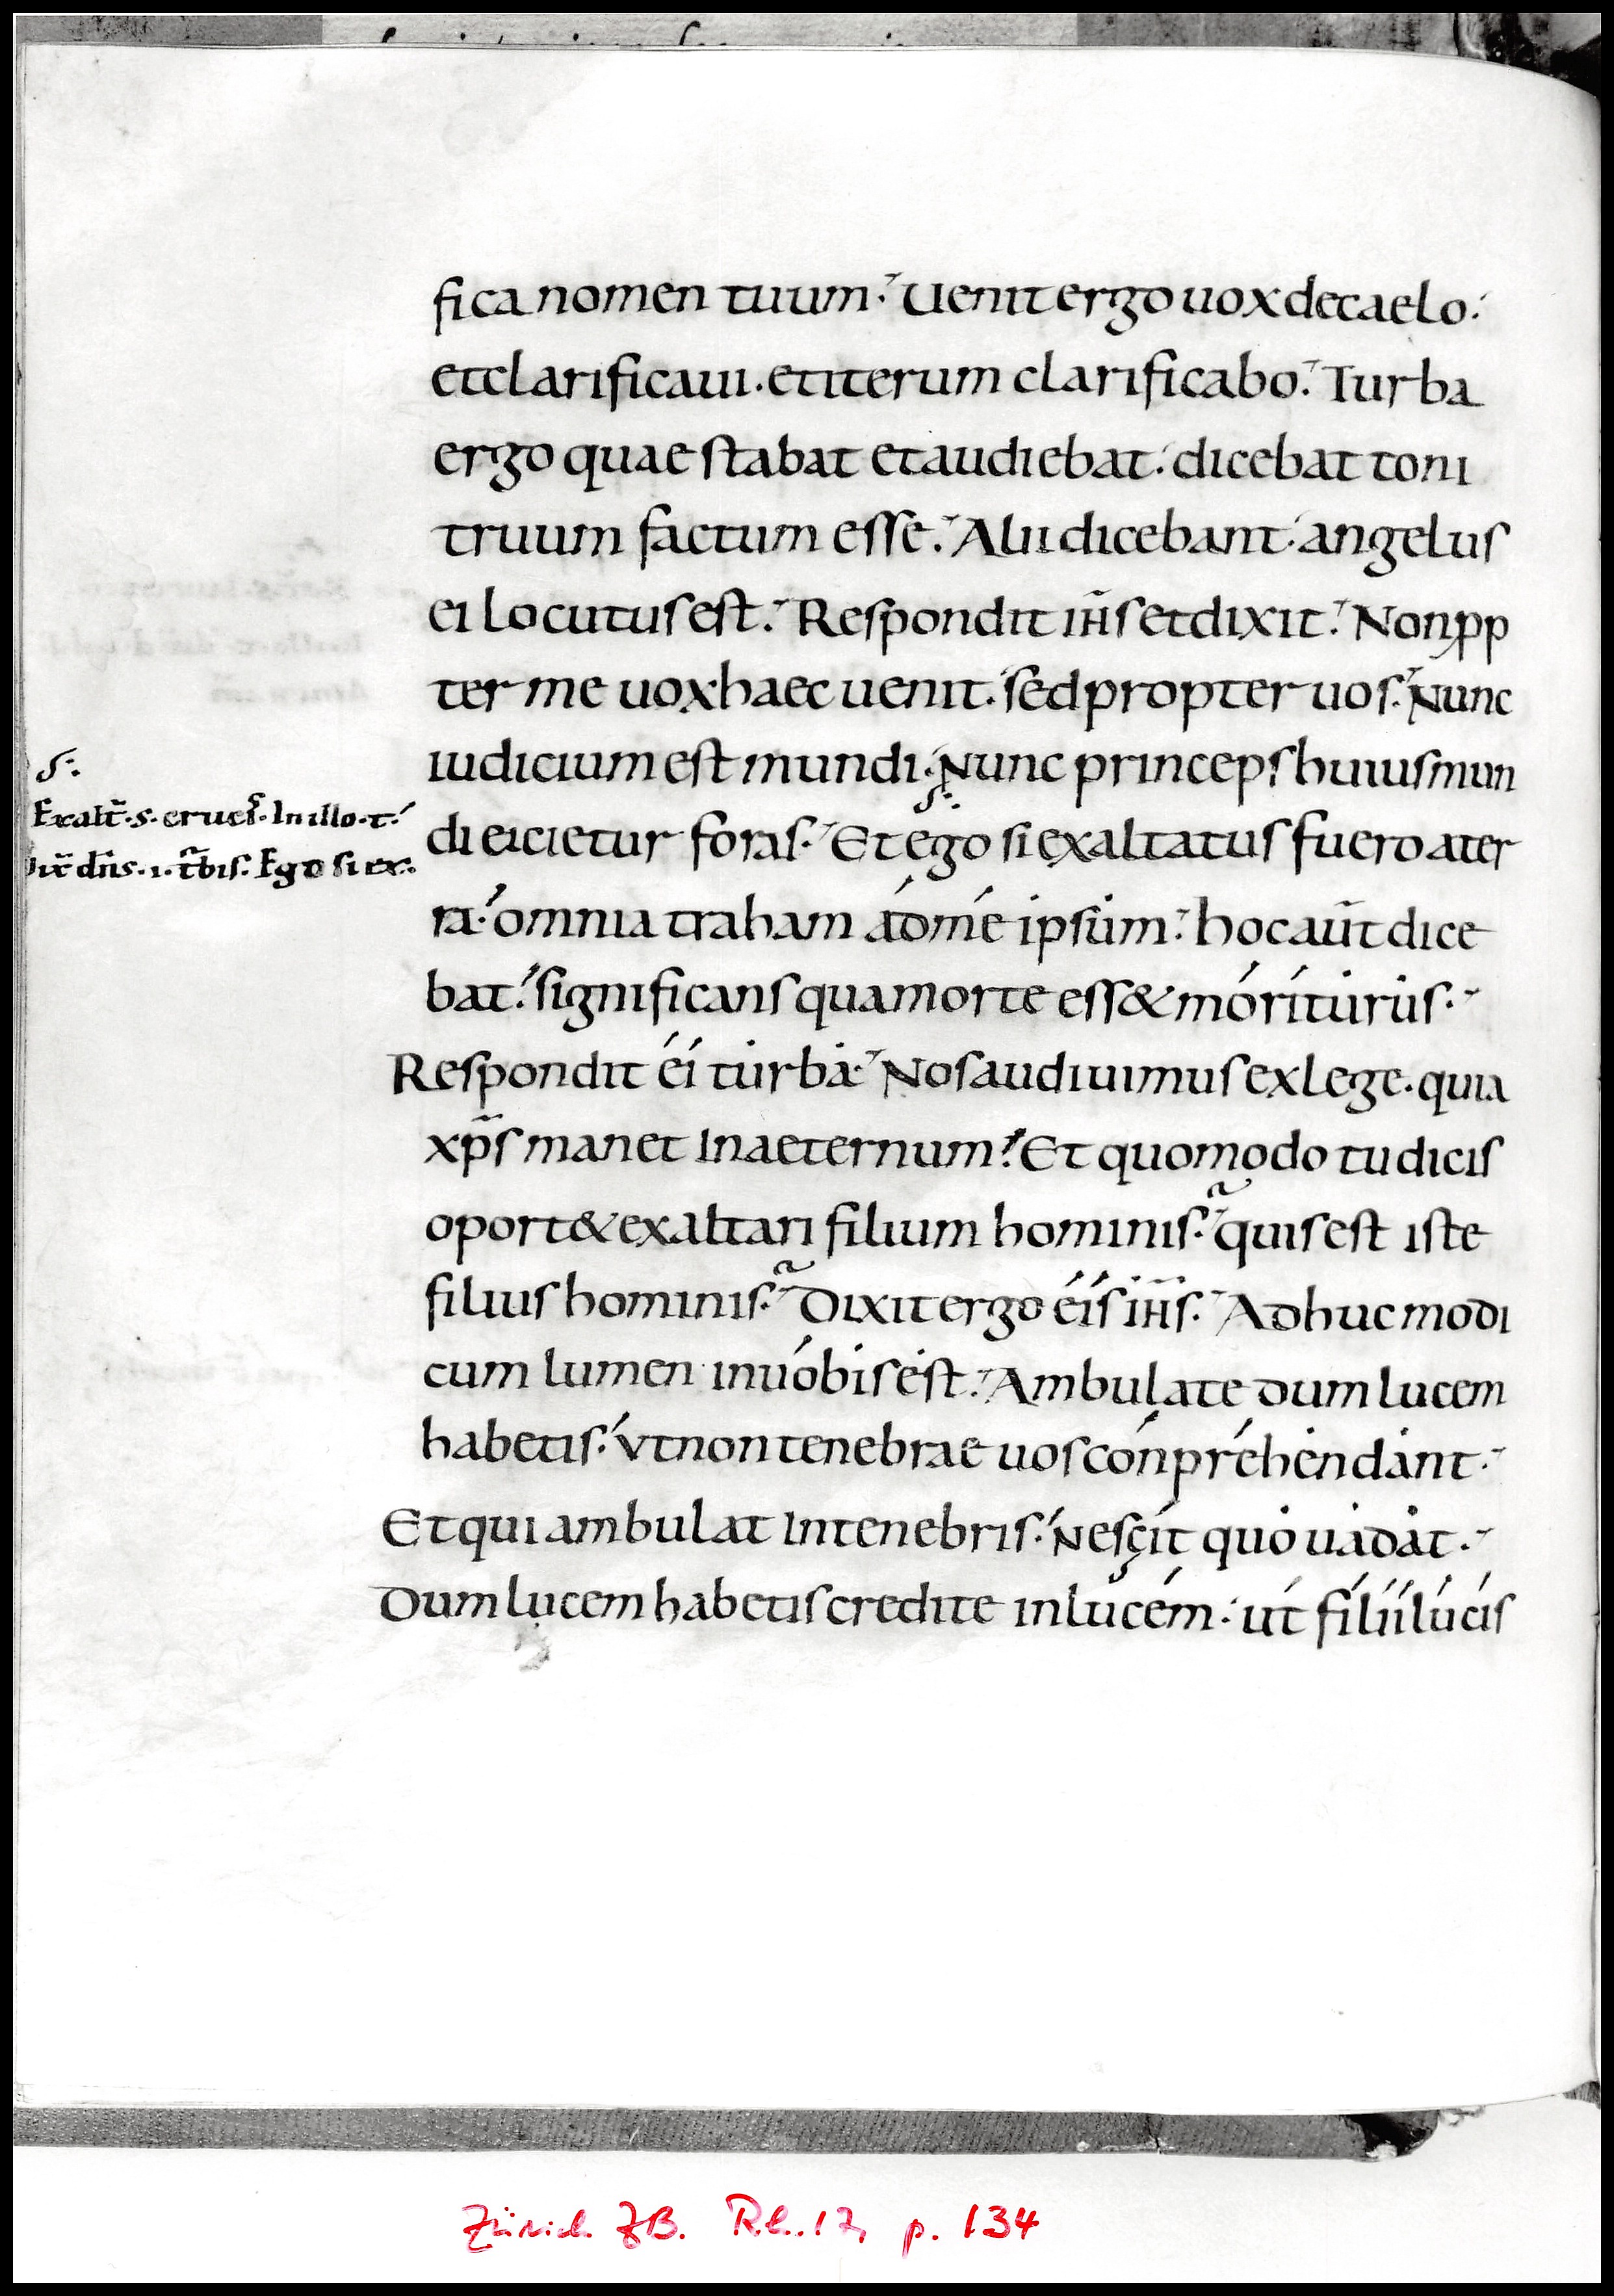 fica nomen tuum. Uenit ergo uox de caelo.
et clarificaui. et iterum clarificabo. Turba
ergo quae stabat et audiebat. dicebat toni
truum factum esse. Alii dicebant. angelus
ei locutus est. Respondit ih̅s et dixit. Non pp
ter me uox haec uenit. sed propter uos. Nunc
iudicium est mundi. Nunc princeps huius mun
S.
Exalt̅. s. erues. In illo. t.
dn̅s. i. t̅bis. Ego si ex.
di eicietur foras. Et ego si exaltatus fuero a ter
ra. omnia traham ad me ipsum. hoc aut̅ dice
bat. significans qua morte ess& moriturus.
Respondit ei turba. Nos audiuimus ex lege. quia
xp̅s manet In aeternum. Et quomodo tu dicis
oport& exaltari filium hominis. quis est iste
filius hominis. Dixit ergo eis ih̅s. Adhuc modi
cum lumen in uobis est. Ambulate dum lucem
habetis. vt non tenebrae uos conprehendant.
Et qui ambulat In tenebris. Nescit quo uadat.
Dum lucem habetis credite in lucem. ut filii lucis
Zürich ZB. Rh. 17, p. 134